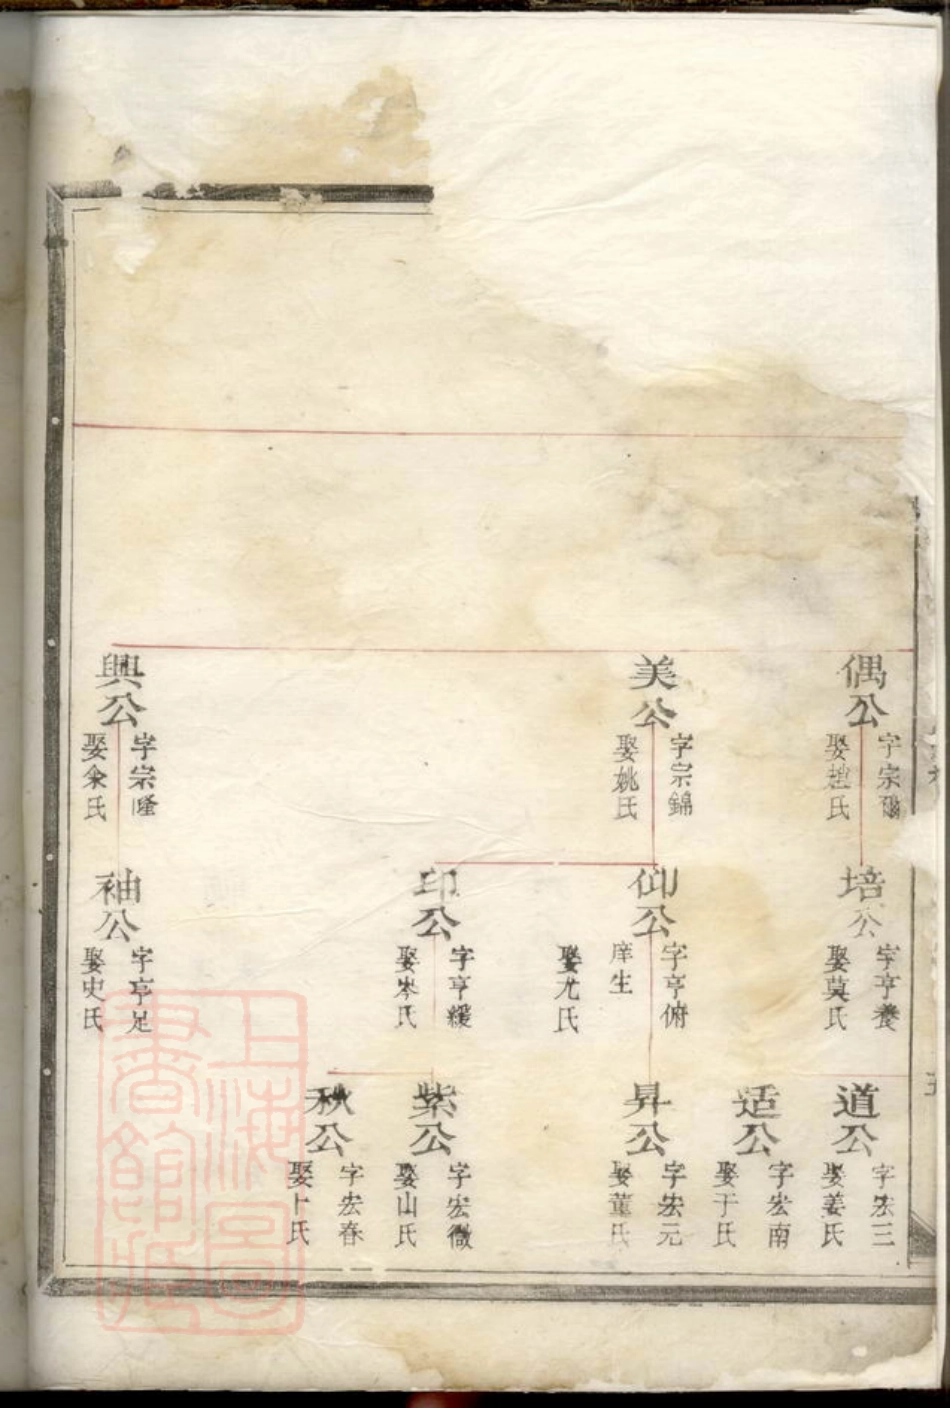 偶公
字宗爾
娶趙氏
美公
字宗錦
娶姚氏
興公
字宗隆
娶籴氏
培公
字亨養
娶莫氏
仰公
字亨俯
庠生
娶尤氏
印公
字亨緩
娶岑氏
袖公
字亨足
娶史氏
道公
字宏三
娶姜氏
适公
字宏南
娶于氏
昇公
字宏元
娶董氏
紫公
字宏微
娶山氏
秋公
字宏春
娶卞氏
上海圖
書館藏